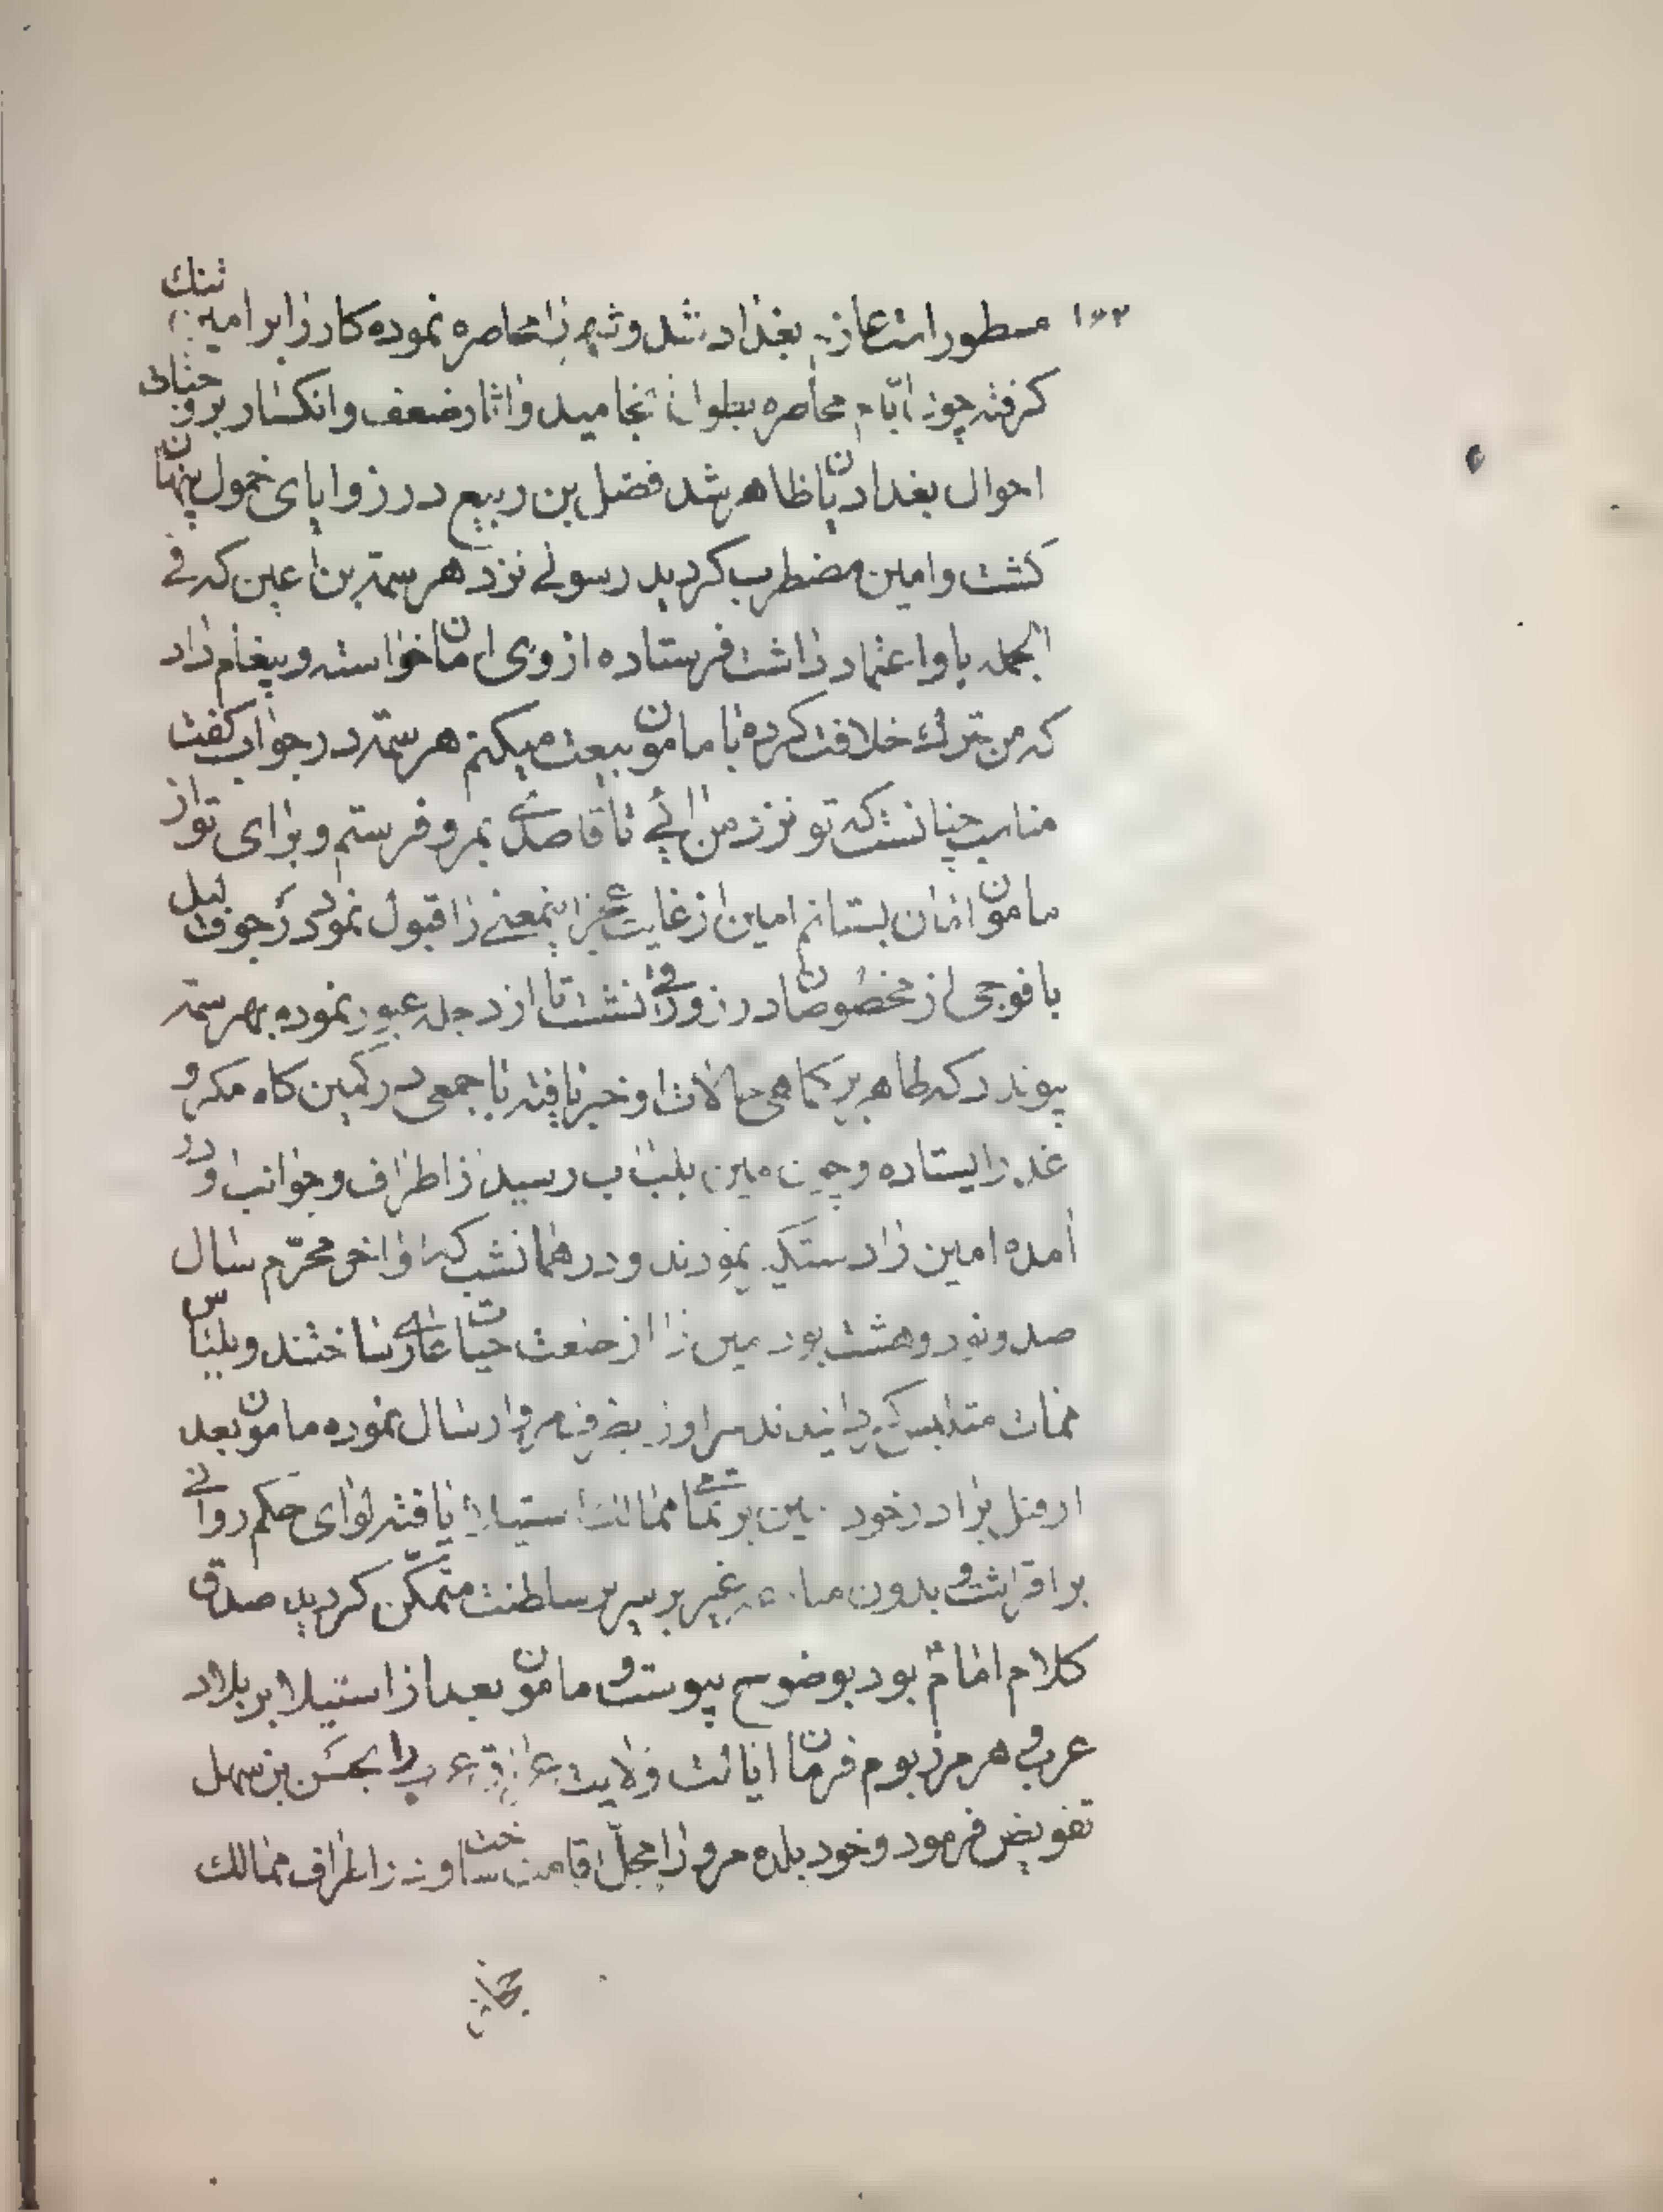 ۱۶۲ مسطور است عازم بغداد شد و شهر را محاصره نموده کار را بر امین تنک
کرفته چون ایام محاصره بطول انجامید و اثار ضعف و انکسار بر وجنات
احوال بغدادیان ظاهر شد فضل بن ربیع در زوایای خمول پنهان
کشت و امین مضطرب کردید رسولی نزد هرثمه بن اعین که فی
الجمله باو اعتماد داشت فرستاده از وی امان خواسته و پیغام داد
که من ترک خلافت کرده با مامون بیعت میکنم هرثمه در جواب کفت
مناسب چنانست که تو نزد من ائی تا قاصدی بمرو فرستم و برای تو از
مامون امان بستانم امین از غایت عجز اینمعنی را قبول نمود در جوف لیل
با فوجی از مخصوصان در زورقی نشست تا از دجله عبور نموده بهرثمه
پیوندد که طاهر بر کماهی حالات او خبر یافته با جمعی در کمین کاه مکر و
غدر ایستاده و چون امین بلب اب رسید از اطراف و جوانب او در
امده امین را دستکیر نمودند و در همانشب که اواخر محرّم سال
صد و نود و هشت بود امین را از خلعت حیات عاری ساختند و بلباس
ممات متلبس کردانیدند سر او را بمرو ارسال نموده مامون بعد
از قتل برادر خود امین بر تمامی ممالک استیلا یافته لوای حکم روائی
برافراشت و بدون منازعه غیر بر سریر سلطنت متمکّن کردید صدق
کلام امام بود بوضوح پیوست و مامون بعد از استیلا بر بلاد
عرب و هر مرز بوم فرمان ایالت ولایت عراق عرب را بحسن بن سهل
تفویض فرمود و خود بلده مرو را محلّ اقامت ساخت و از اطراف ممالک